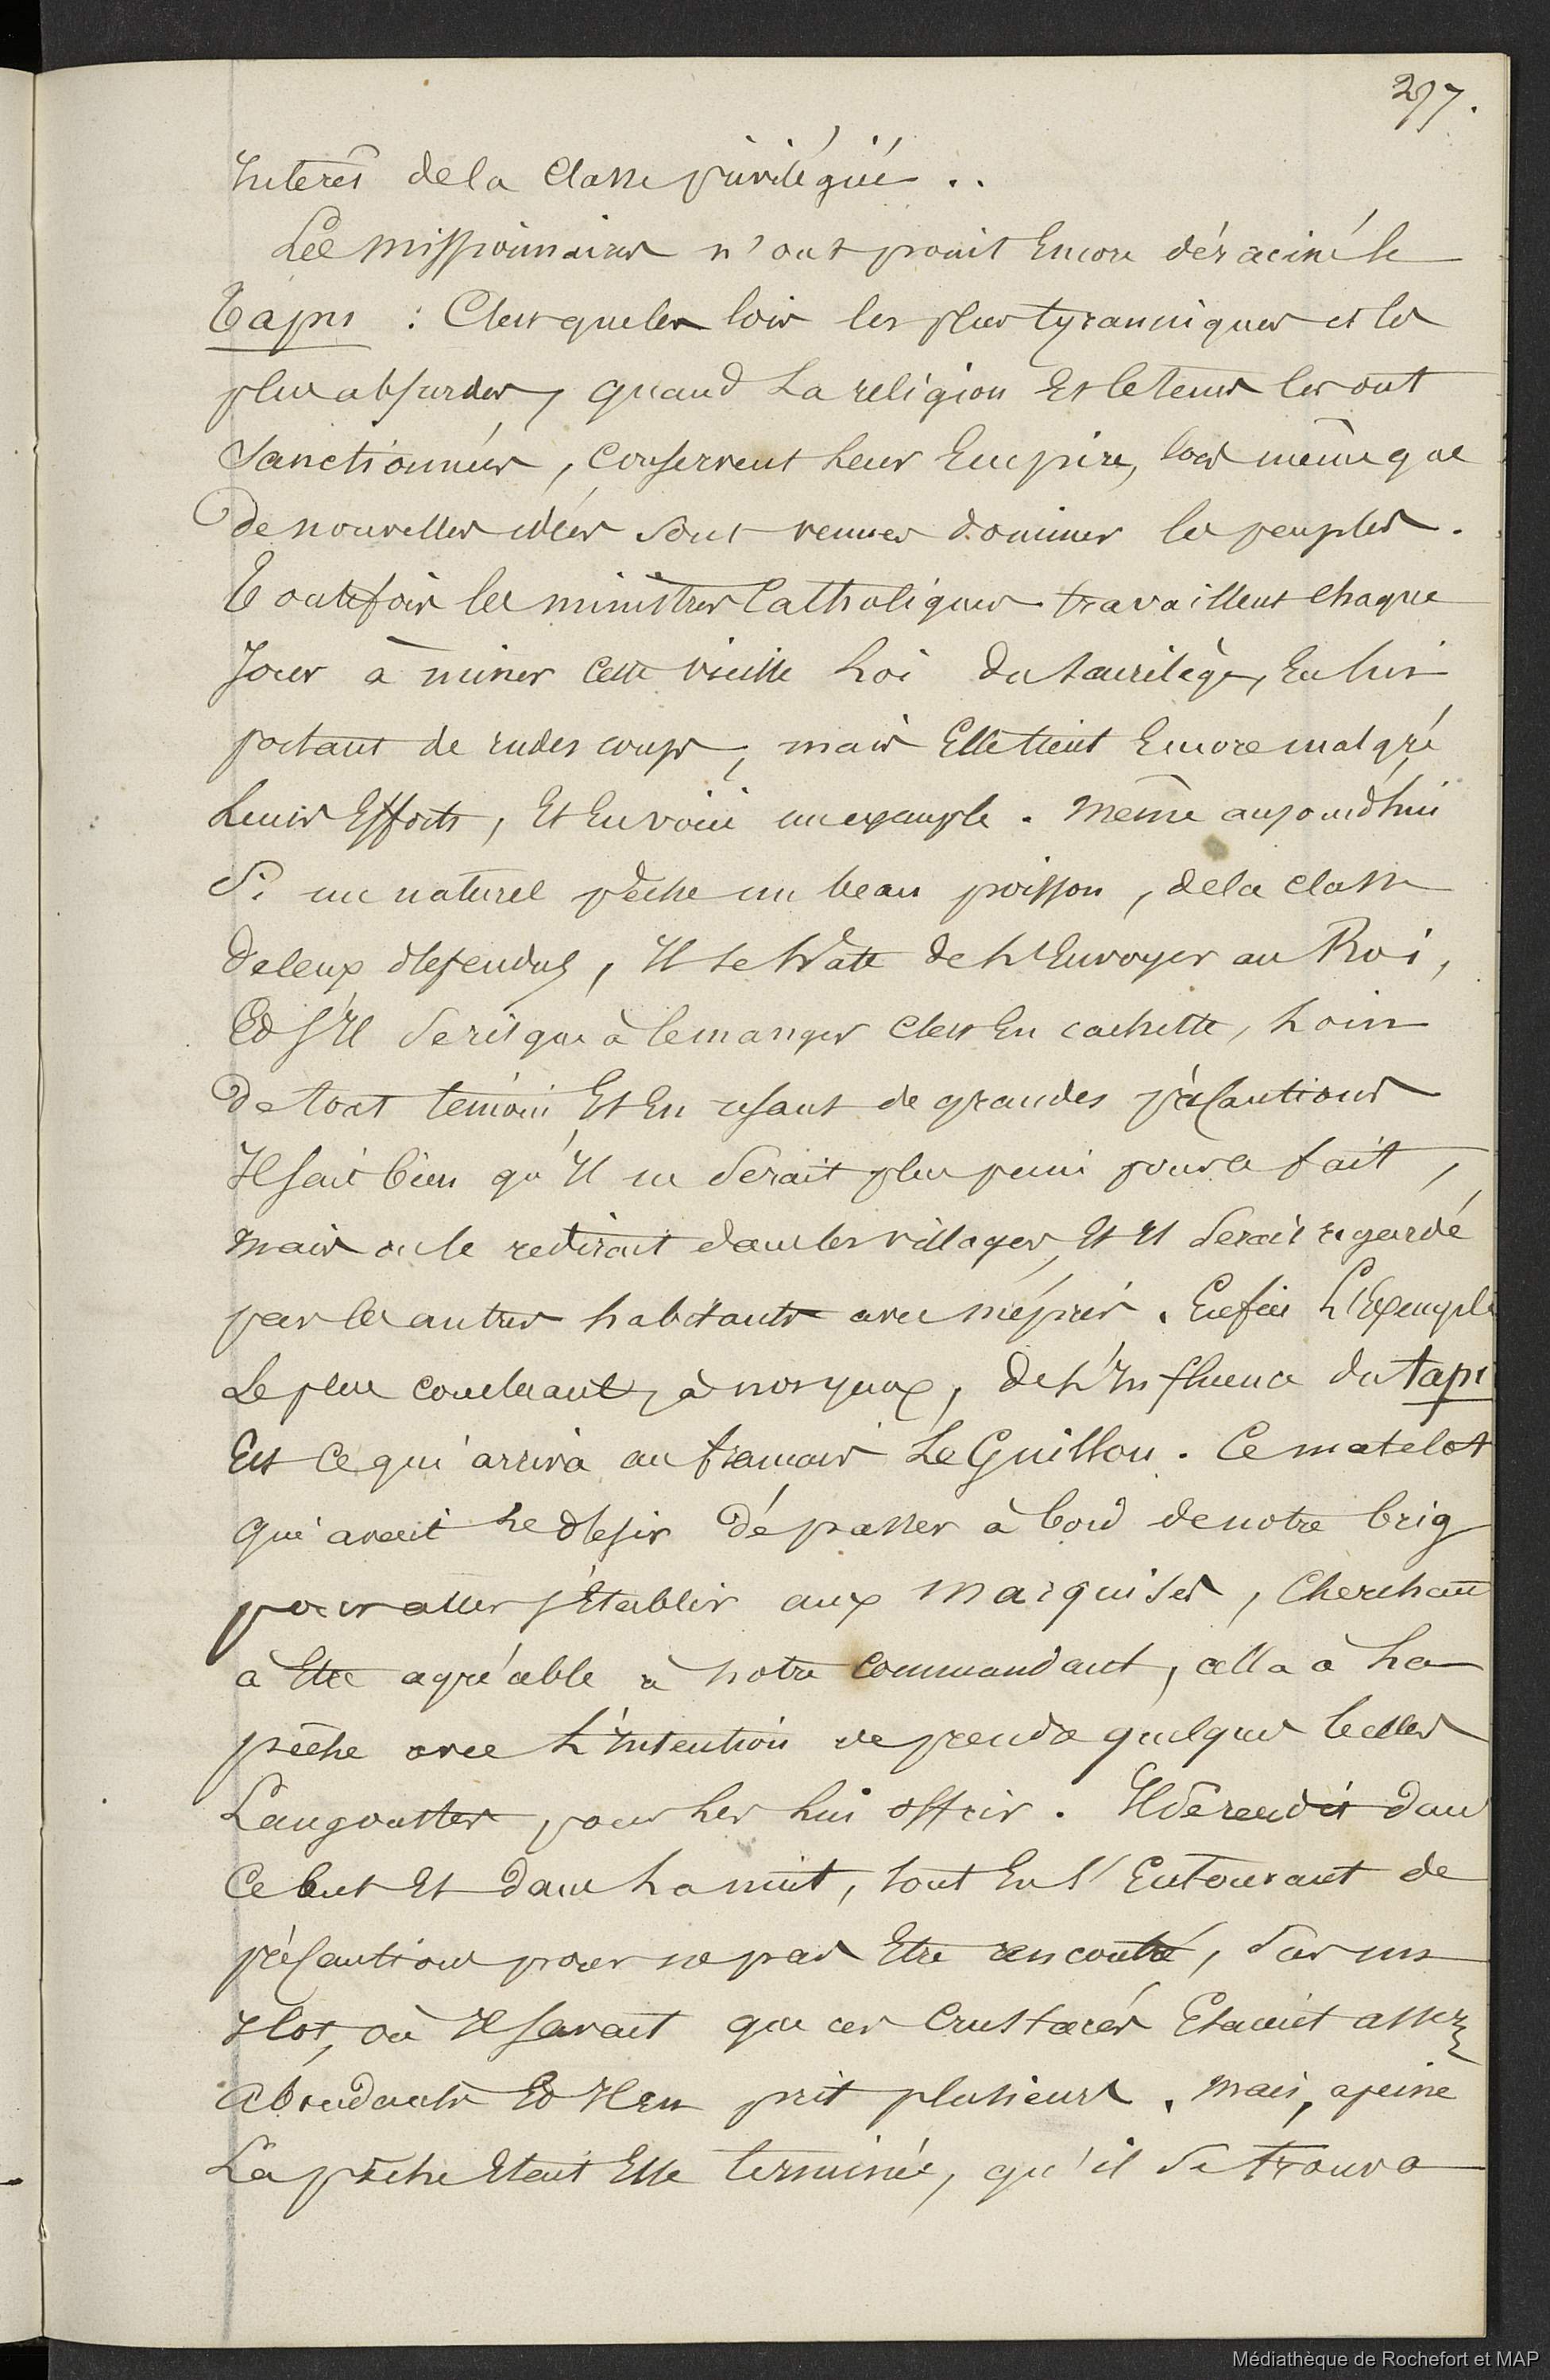 277.
Interêt de la classe privilégiée..
Les missionnaires n'ont point Encore déraciné le
Tapu : C'est que les lois les plus tyranniques et les
plus absurdes, quand La religion Et le tems les ont
Sanctionnées, Conservent Leur Empire, lors même que
De nouvelles idées sont venues dominer les peuples.
Toutefois les ministres Catholiques travaillent chaque
Jour à miner Cette vieille Loi du sacrilège, En lui
portant de rudes coups, mais Elle tient Encore malgré
Leurs Efforts, Et En voici un exemple. même aujourd'hui
Si un naturel pêche un beau poisson, de la classe
De ceux défendus, Il se hâte de L'Envoyer au Roi,
Et S'Il Se risque à le manger C'est En cachette, Loin
De tout témoin Et En usant de grandes précautions
Il sait bien qu'Il ne Serait plus puni pour ce fait,
mais on le redirait dans les villages, Et Il Serait regardé
par les autres habitants avec mépris. Enfin L'Exemple
Le plus concluant, à nos yeux, de L'Influence du tapu
Est Ce qui arriva au français Le Guillou. Ce matelot
qui avait Le désir de passer à bord de notre brig
pour aller S'Etablir aux marquises, Cherchant
à Etre agréable à notre Commandant, alla à La
pêche avec L'Intention de prendre quelques belles
Langoustes pour Les Lui offrir. Il Se rendit dans
Ce but Et dans La nuit, tout En S'Entourant de
précautions pour ne pas Etre rencontré, Sur un
Ilot, où Il savait que ces Crustacés Etaient assez
Abondants Et Il En prit plusieurs. mais, a peine
La pêche Etait Elle terminée, qu'il Se trouva
Médiathèque de Rochefort et MAP